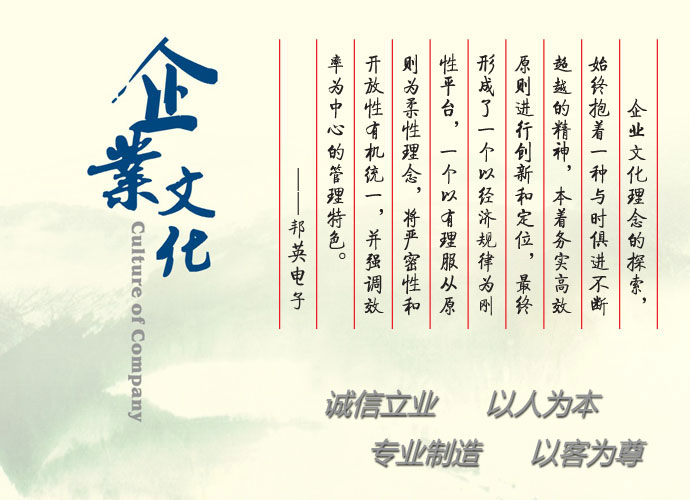 企業文化
Culture of Company
企业文化理念的探索，
始终抱着一种与时俱进不断
超越的精神，本着务实高效
原则进行创新和定位，最终
形成了一个以经济规律为刚
性平台，一个以有理服从原
则为柔性理念，将严密性和
开放性有机统一，并强调效
率为中心的管理特色。
——邦英电子
诚信立业 以人为本
专业制造 以客为尊